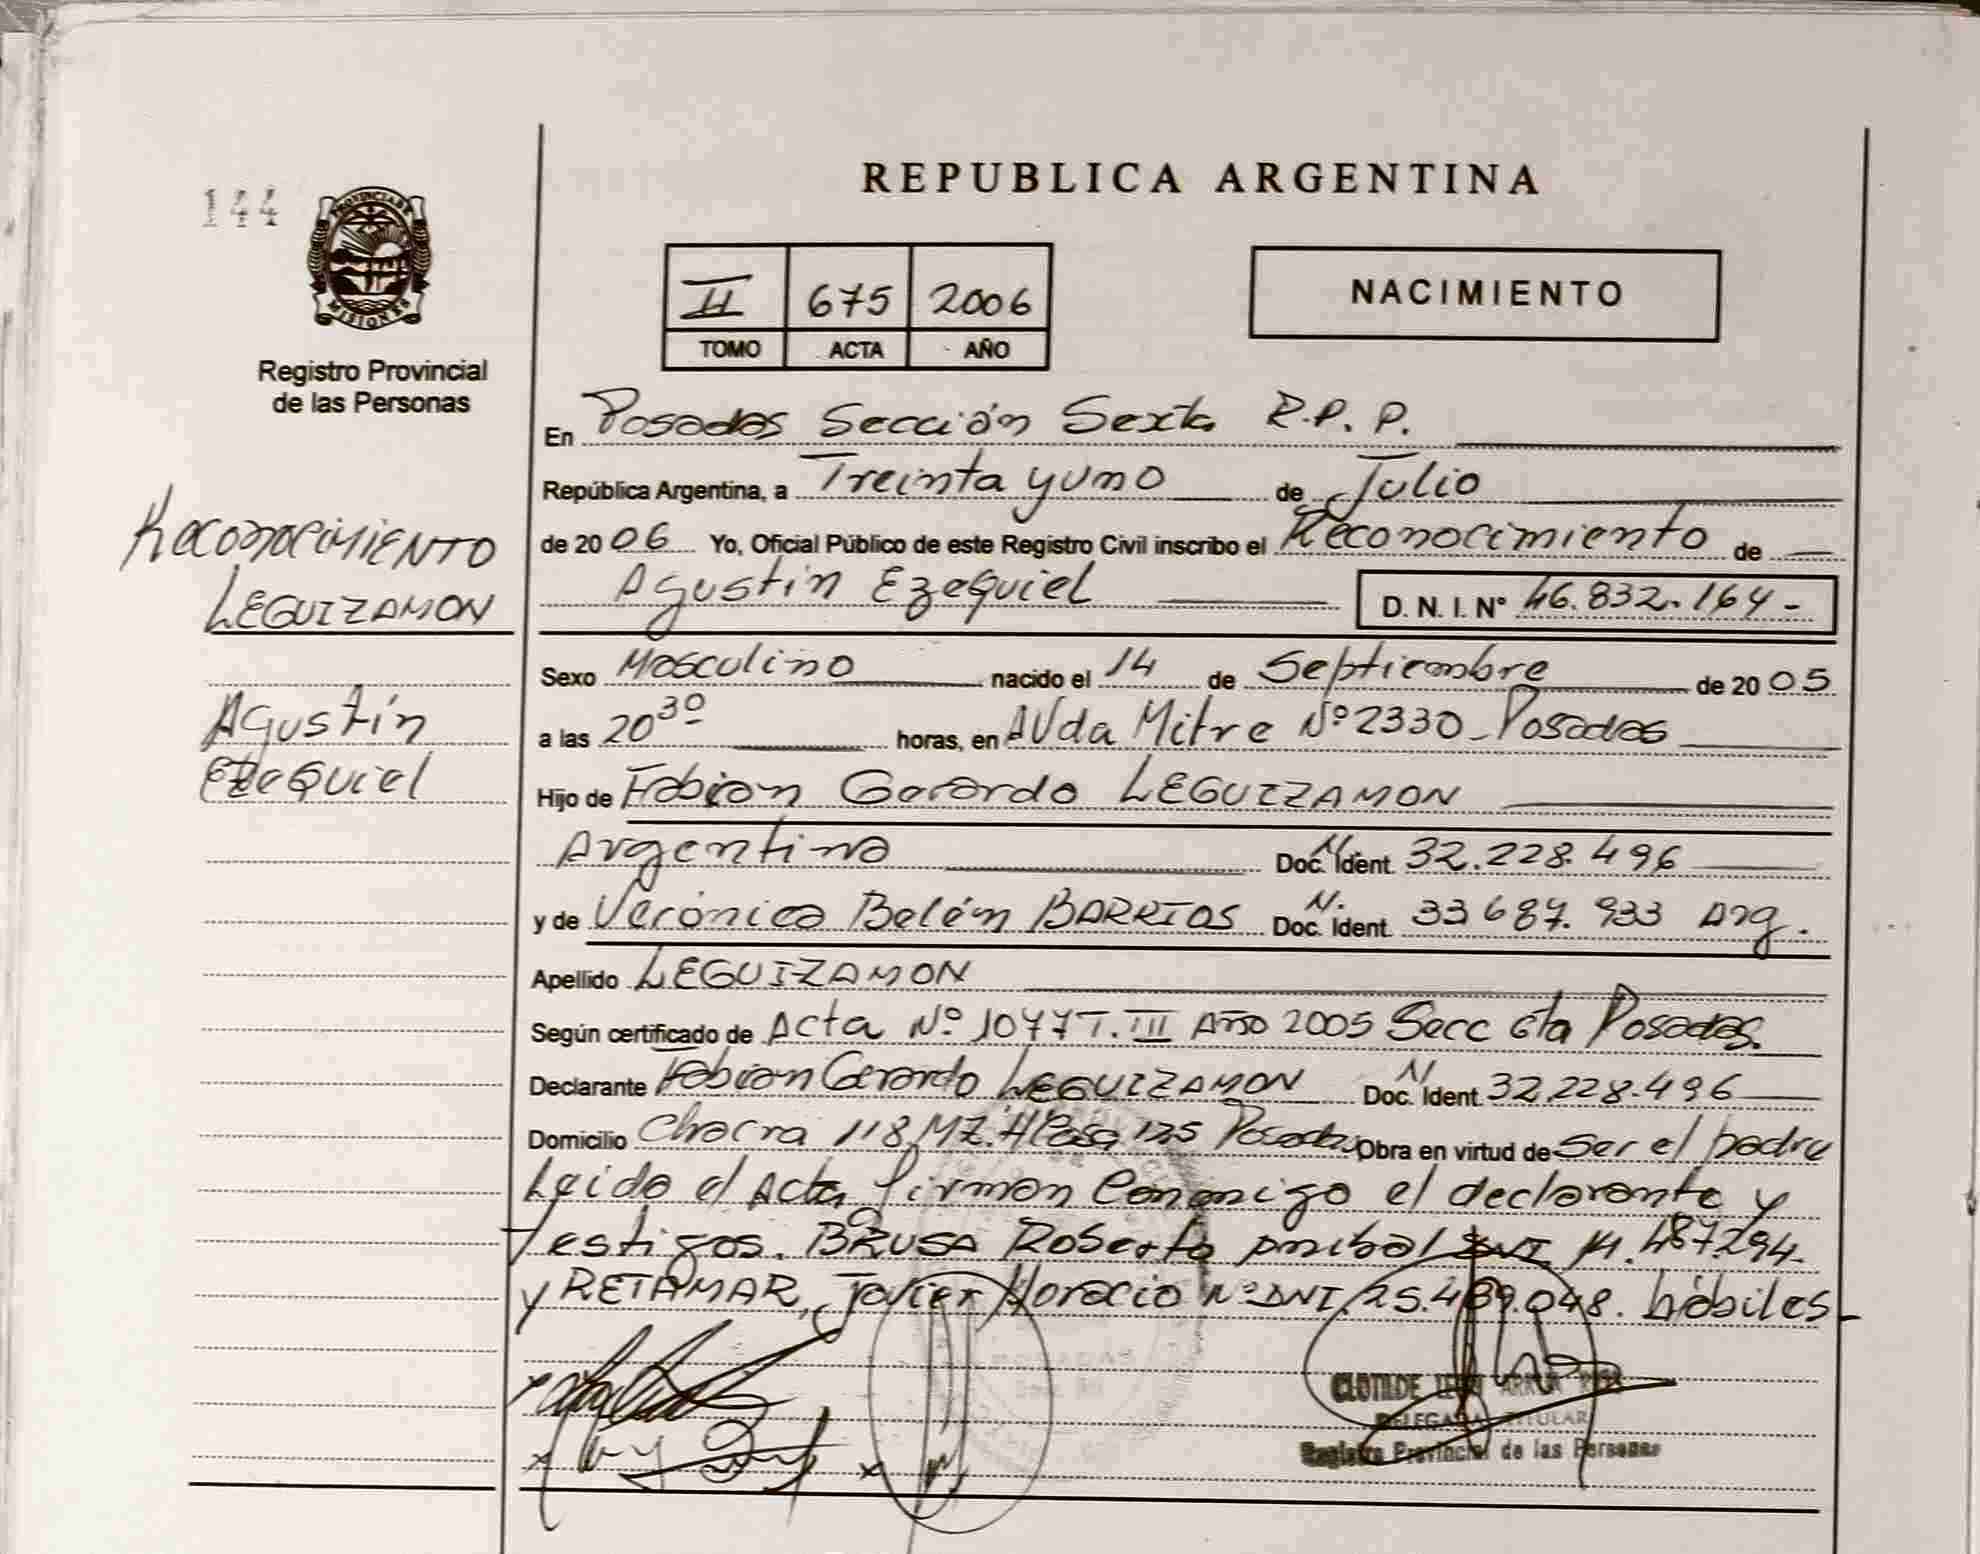 144
PROVINCIA DE
MISIONES
Registro Provincial
de las Personas
Reconocimiento
LEGUIZAMON
Agustín
Ezequiel
REPUBLICA ARGENTINA
II 675 2006
TOMO ACTA AÑO
NACIMIENTO
En Posadas Sección Sexta R.P.P.
República Argentina, a Treinta y uno de Julio
de 2006 Yo, Oficial Público de este Registro Civil inscribo el Reconocimiento de
Agustin Ezequiel D.N.I. Nº 46.832.164-
Sexo Masculino nacido el 14 de Septiembre de 2005
a las 20 30 horas, en AVda Mitre Nº 2330 - Posadas
Hijo de Fabian Gerardo LEGUIZAMON
Argentino N. Doc. Ident. 32.228.496
y de Verónica Belén BARRIOS N. Doc. Ident. 33 687. 933 Arg.
Apellido LEGUIZAMON
Según certificado de Acta Nº 1077 T. III Año 2005 Secc 6ta Posadas.
Declarante Fabian Gerardo LEGUIZAMON N Doc. Ident. 32.228.496
Domicilio Chacra 118 MZ. A Casa 125 Posadas Obra en virtud de Ser el padre
Leido el Acta firman Conmigo el declarante y
Testigos. BRUSA Roberto Anibal DNI 14.487.294-
y RETAMAR, Javier Horacio Nº DNI. 25.489.048. hábiles-
CLOTILDE
DELEGADA TITULAR
Registro Provincial de las Personas